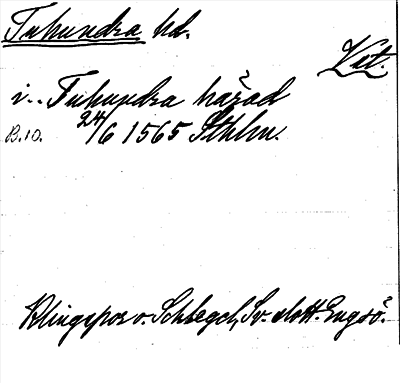 Tuhundra hd.
Vstm.
i. Tuhundra härad
B.10. 24/6 1565 Sthlm.
Klingspor o. Schlegel, Sv. slott. Engsö.